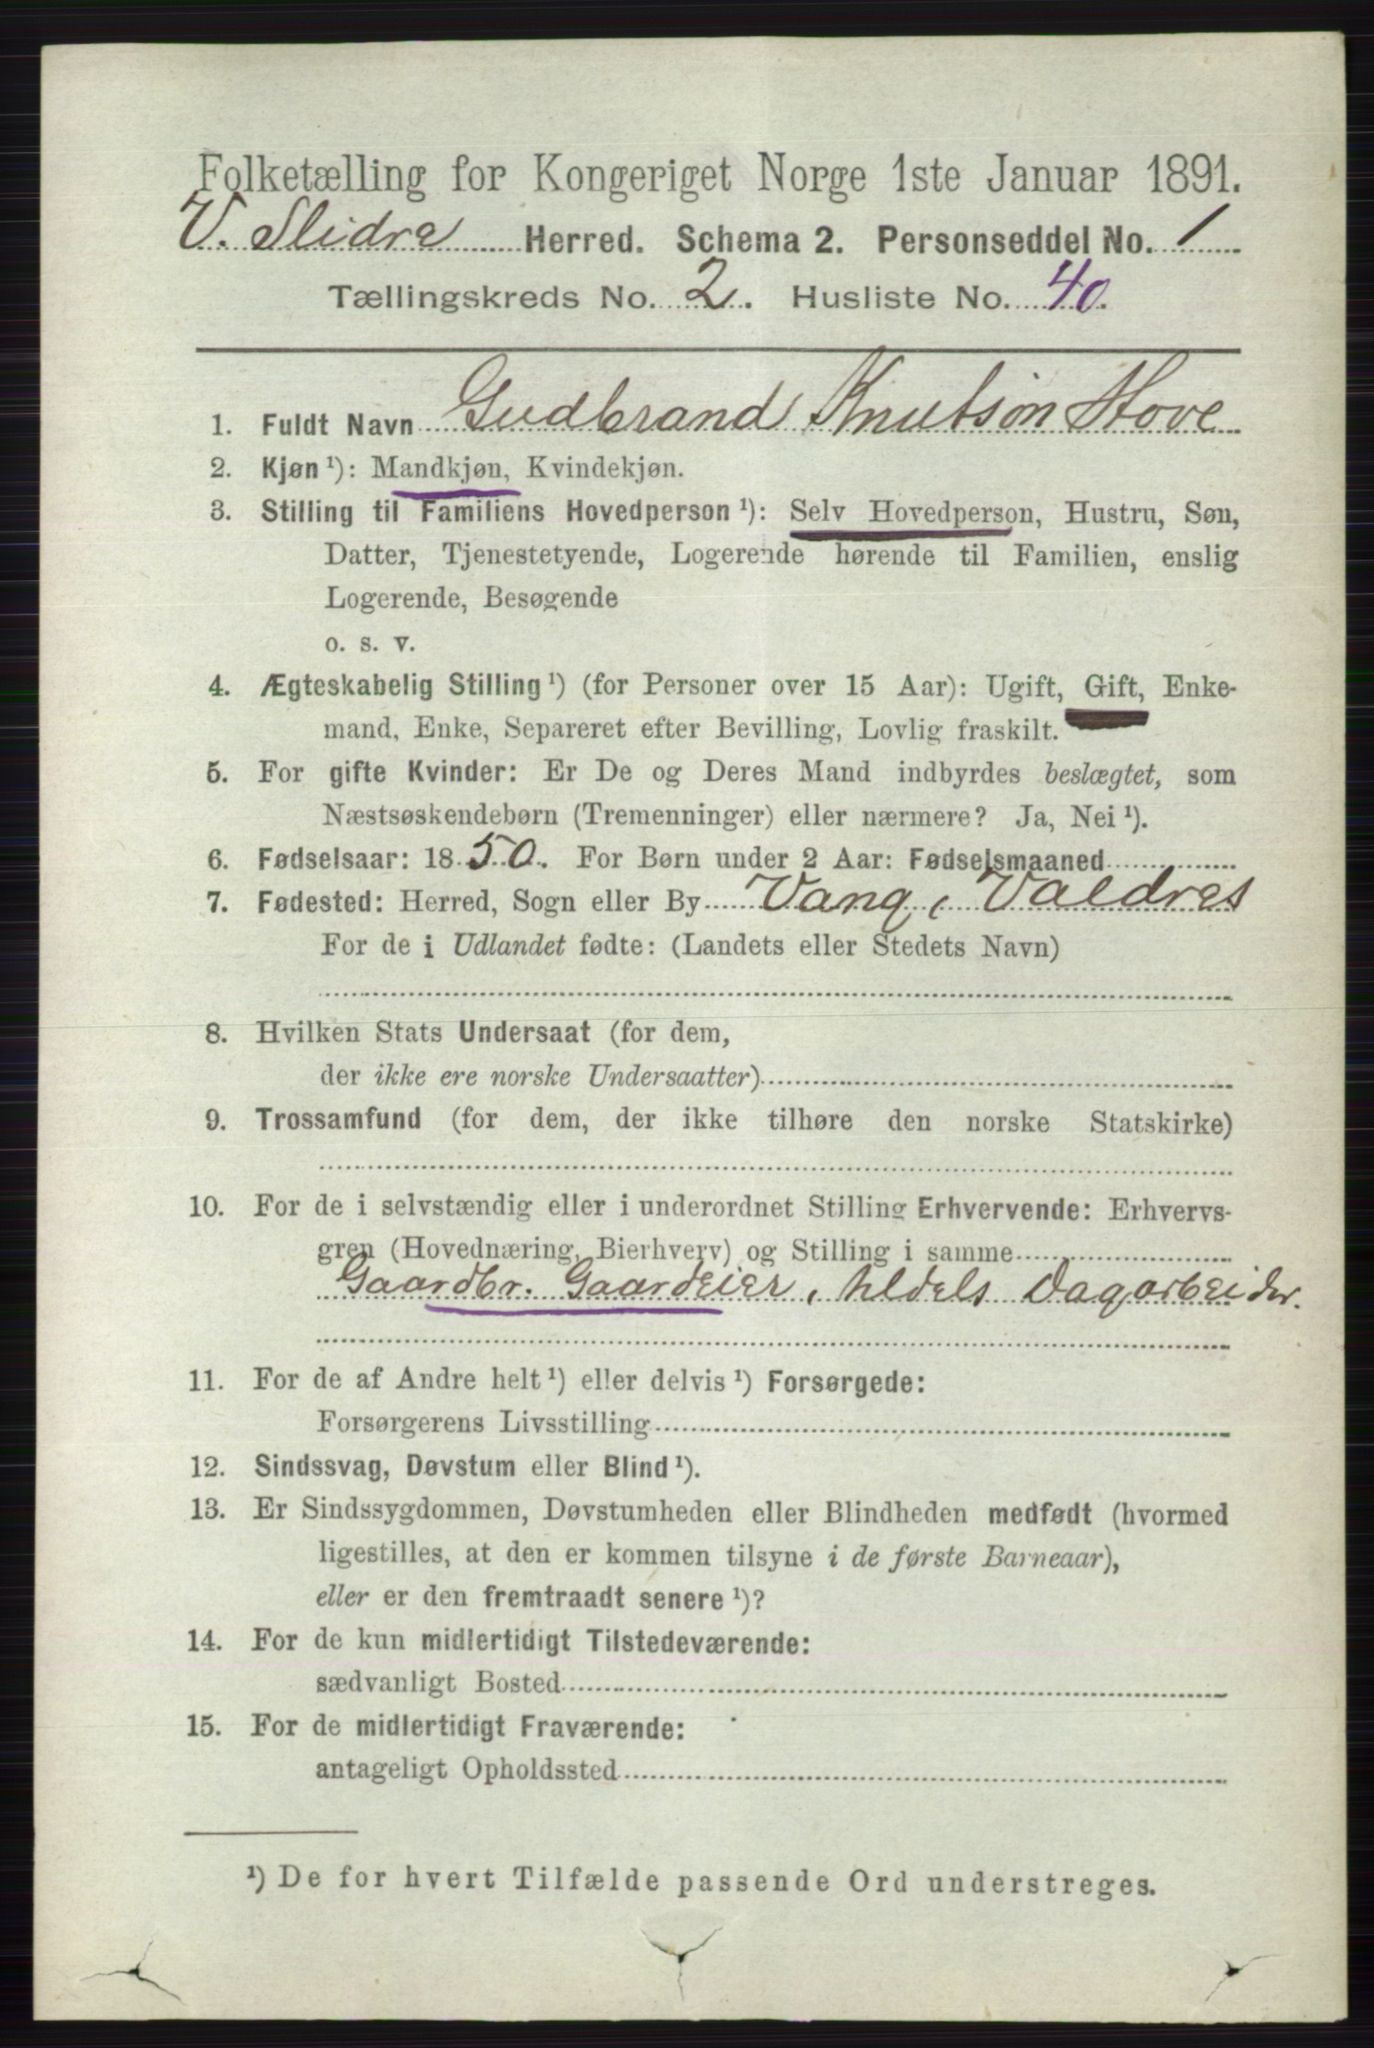 Folketælling for Kongeriget Norge 1ste Januar 1891.
V. Slidre Herred. Schema 2. Personseddel No. 1
Tællingskreds No. 2. Husliste No. 40.
1. Fuldt Navn Gudbrand Knutsøn Hove
2. Kjøn ¹): Mandkjøn, Kvindekjøn.
3. Stilling til Familiens Hovedperson ¹): Selv Hovedperson, Hustru, Søn,
Datter, Tjenestetyende, Logerende hørende til Familien, enslig
Logerende, Besøgende
o. s. v.
4. Ægteskabelig Stilling ¹) (for Personer over 15 Aar): Ugift, Gift, Enke-
mand, Enke, Separeret efter Bevilling, Lovlig fraskilt.
5. For gifte Kvinder: Er De og Deres Mand indbyrdes beslægtet, som
Næstsøskendebørn (Tremenninger) eller nærmere? Ja, Nei ¹).
6. Fødselsaar: 1850. For Børn under 2 Aar: Fødselsmaaned
7. Fødested: Herred, Sogn eller By Vang, Valdres
For de i Udlandet fødte: (Landets eller Stedets Navn)
8. Hvilken Stats Undersaat (for dem,
der ikke ere norske Undersaatter)
9. Trossamfund (for dem, der ikke tilhøre den norske Statskirke)
10. For de i selvstændig eller i underordnet Stilling Erhvervende: Erhvervs-
gren (Hovednæring, Bierhverv) og Stilling i samme
Gaardbr. Gaardeier, tildels Dagarbeider.
11. For de af Andre helt ¹) eller delvis ¹) Forsørgede:
Forsørgerens Livsstilling
12. Sindssvag, Døvstum eller Blind ¹).
13. Er Sindssygdommen, Døvstumheden eller Blindheden medfødt (hvormed
ligestilles, at den er kommen tilsyne i de første Barneaar),
eller er den fremtraadt senere ¹)?
14. For de kun midlertidigt Tilstedeværende:
sædvanligt Bosted
15. For de midlertidigt Fraværende:
antageligt Opholdssted
¹) De for hvert Tilfælde passende Ord understreges.